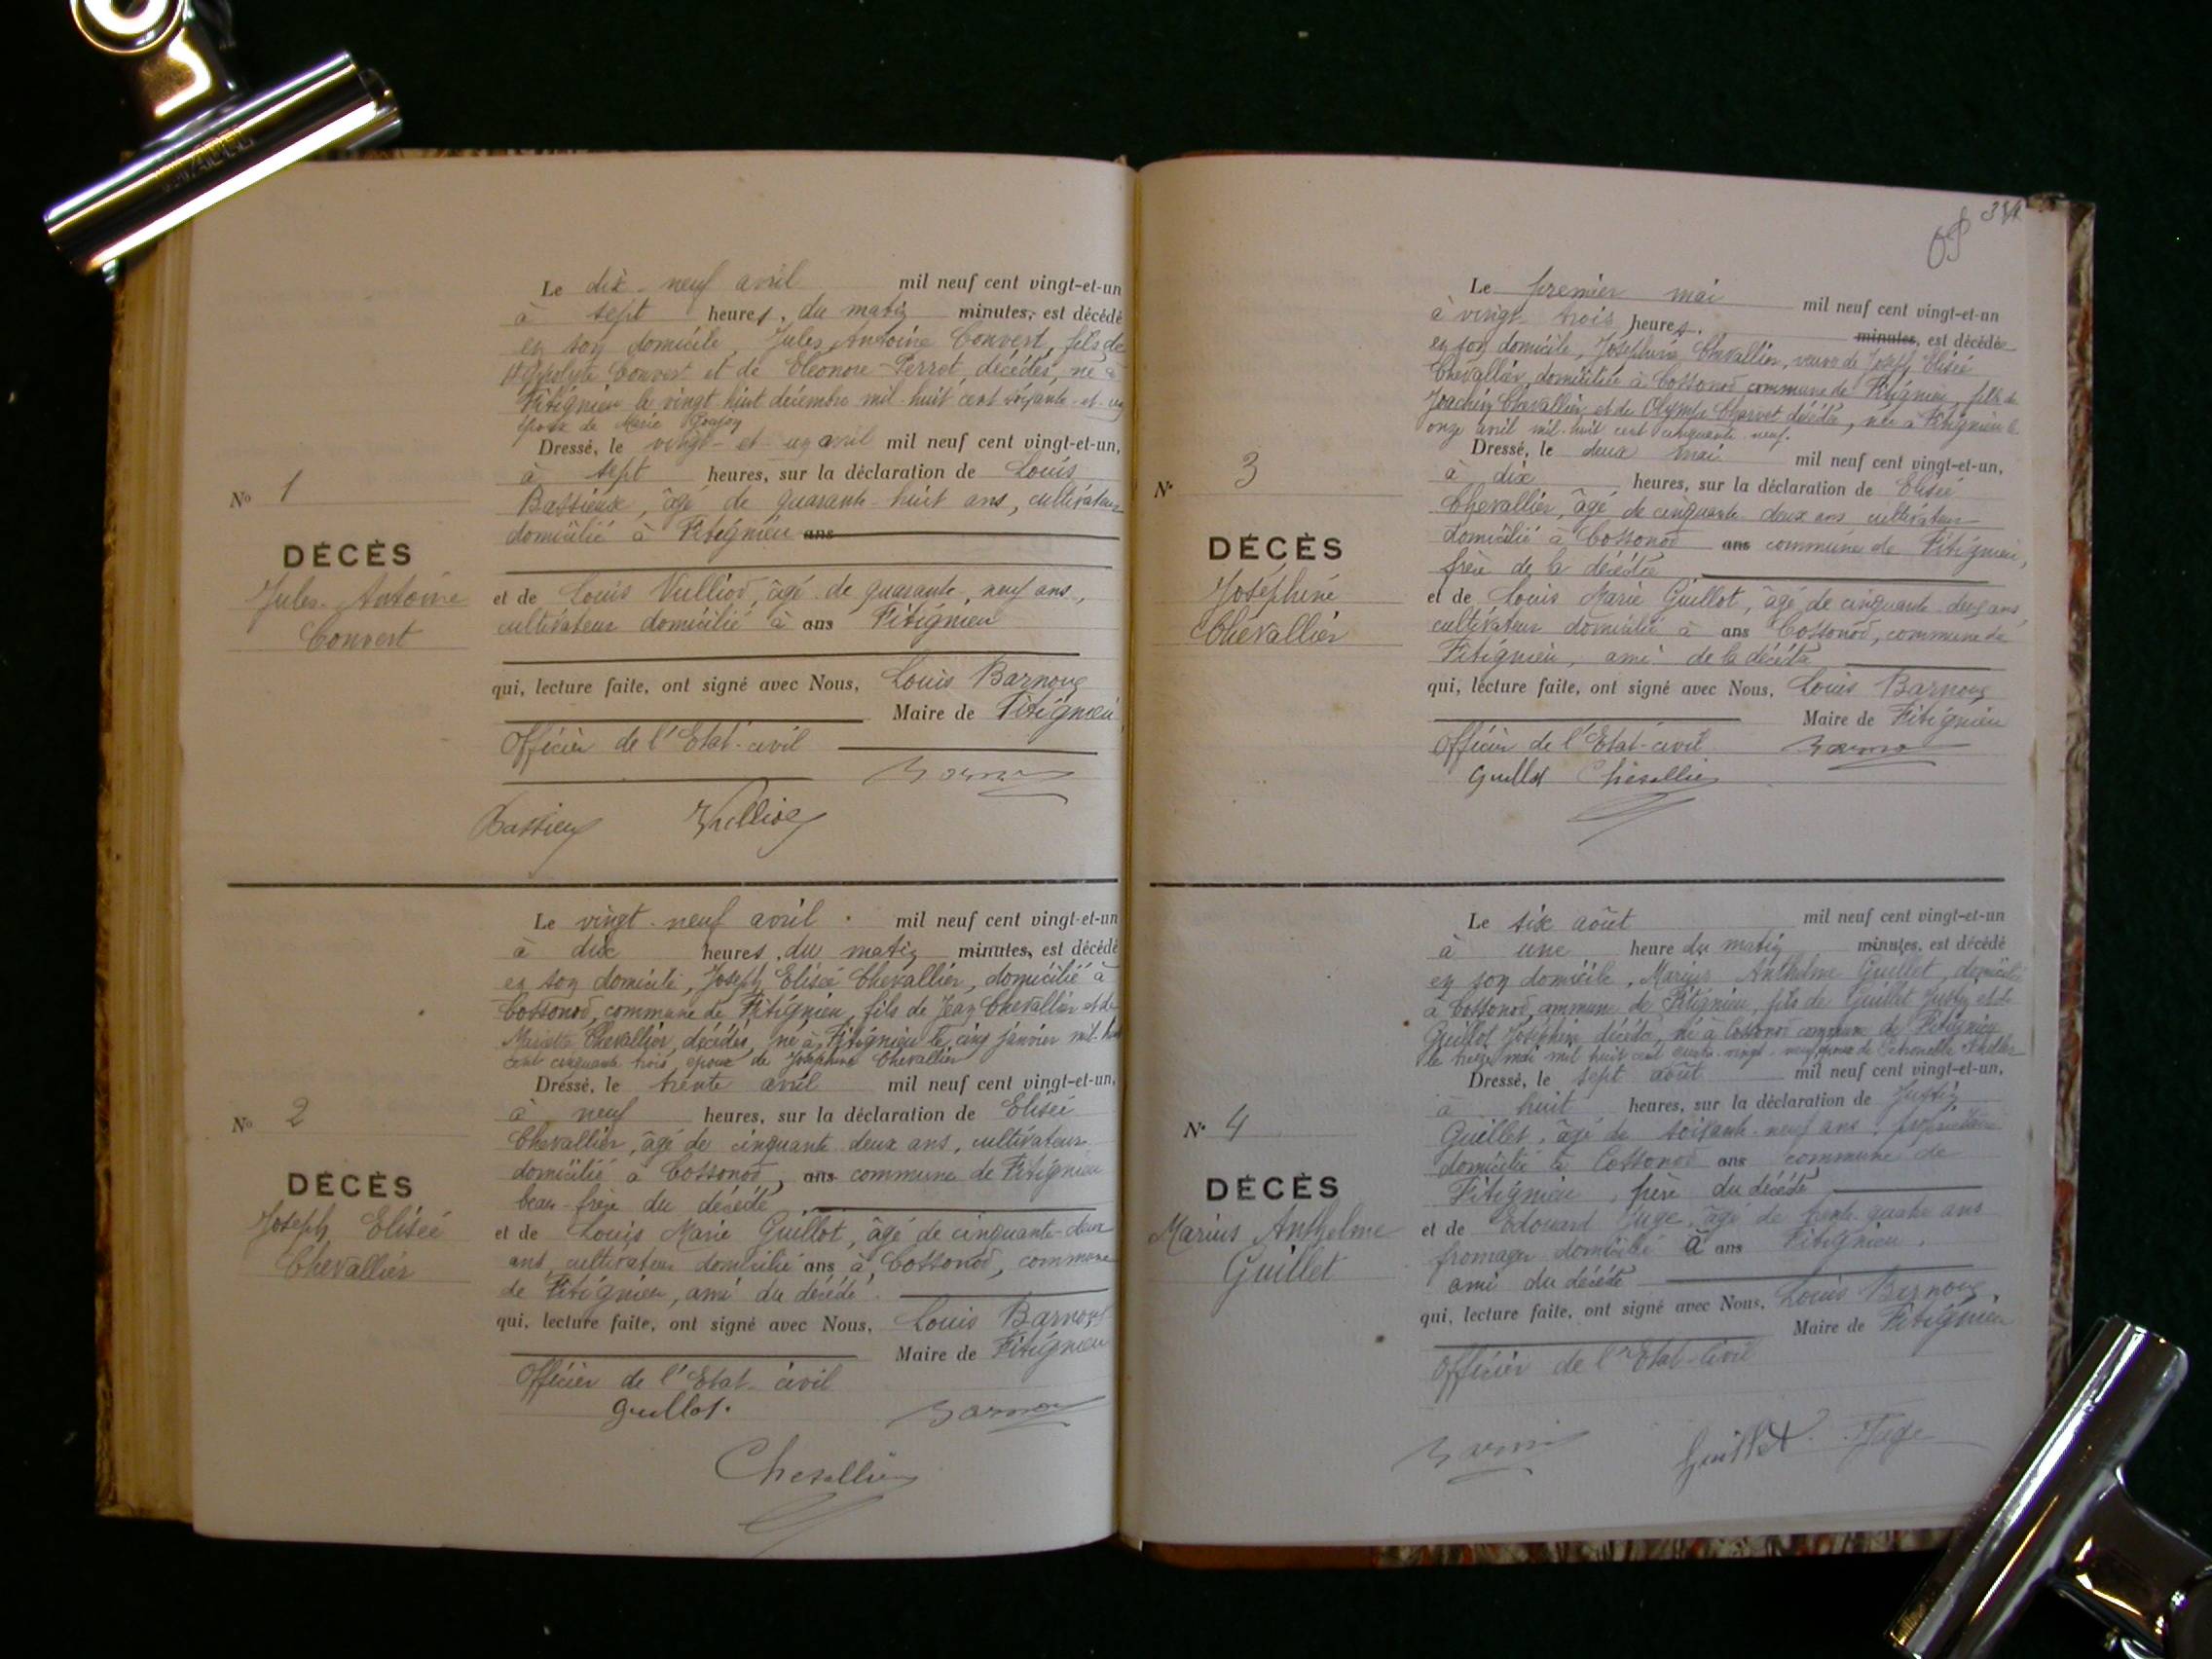 Le dix-neuf avril mil neuf cent vingt-et-un
à sept heures, du matin minutes, est décédé
en son domicile, Jules Antoine Convert, fils de
Hyppolyte Convert et de Eléonore Perret, décédés, né à
Fitignieu le vingt huit décembre mil-huit cent soixante-et-un
époux de Marie
Dressé, le vingt-et-un avril mil neuf cent vingt-et-un,
à sept heures, sur la déclaration de Louis
Bassieux, âgé de quarante-huit ans, cultivateur
domicilié à Fitignieu ans
et de Louis Vulliod, âgé de quarante-neuf ans,
cultivateur domicilié à ans Fitignieu
qui, lecture faite, ont signé avec Nous, Louis Barnoux
Maire de Fitignieu
Officier de l'Etat-civil
Bassieux Vulliod
No 1
DÉCÈS
Jules Antoine
Convert
Le vingt-neuf avril mil neuf cent vingt-et-un
à dix heures, du matin minutes, est décédé
en son domicile, Joseph Elisée Chevallier, domicilié à
Cossonod, commune de Fitignieu, fils de Jean Chevallier et de
Mariette Chevallier, décédés, né à Fitignieu le cinq janvier mil-huit
cent cinquante trois, époux de Joséphine Chevallier
Dressé, le trente avril mil neuf cent vingt-et-un,
à neuf heures, sur la déclaration de Elisée
Chevallier, âgé de cinquante deux ans, cultivateur
domicilié à Cossonod, ans commune de Fitignieu
beau-frère du décédé
et de Louis Marie Guillot, âgé de cinquante-deux
ans, cultivateur domicilié ans à Cossonod, commune
de Fitignieu, ami du décédé.
qui, lecture faite, ont signé avec Nous, Louis Barnoux
Maire de Fitignieu
Officier de l'Etat-civil
Guillot.
Chevallier
No 2
DÉCÈS
Joseph Elisée
Chevallier
Le premier mai mil neuf cent vingt-et-un
à vingt-trois heures. minutes, est décédée
en son domicile, Joséphine Chevallier, veuve de Joseph Elisée
Chevallier, domiciliée à Cossonod commune de Fitignieu, fille de
Joachim Chevallier et de Olympe Charvet décédés, née à Fitignieu le
onze avril mil-huit cent cinquante neuf.
Dressé, le deux mai mil neuf cent vingt-et-un,
à dix heures, sur la déclaration de Elisée
Chevallier, âgé de cinquante-deux ans cultivateur
domicilié à Cossonod ans commune de Fitignieu,
frère de la décédée
et de Louis Marie Guillot, âgé de cinquante-deux ans,
cultivateur domicilié à ans Cossonod, commune de
Fitignieu, ami de la décédée
qui, lecture faite, ont signé avec Nous, Louis Barnoux
Maire de Fitignieu
Officier de l'Etat-civil
Guillot Chevallier
N° 3
DÉCÈS
Joséphine
Chevallier
Le six août mil neuf cent vingt-et-un
à une heure du matin minutes, est décédé
en son domicile, Marius Anthelme Guillet, domicilié
à Cossonod, commune de Fitignieu, fils de Guillet Justin et de
Guillot Joséphine décédée, né à Cossonod commune de Fitignieu
le treize mai mil huit cent quatre-vingt-neuf, époux de Pétronelle
Dressé, le sept août mil neuf cent vingt-et-un,
à huit heures, sur la déclaration de Justin
Guillet, âgé de soixante-neuf ans, propriétaire
domicilié à Cossonod ans commune de
Fitignieu, père du décédé
et de Edouard Juge, âgé de trente-quatre ans
fromager domicilié à ans Fitignieu,
ami du décédé
qui, lecture faite, ont signé avec Nous, Louis Barnoux,
Maire de Fitignieu
Officier de l'Etat-Civil
Guillet Juge
N° 4
DÉCÈS
Marius Anthelme
Guillet